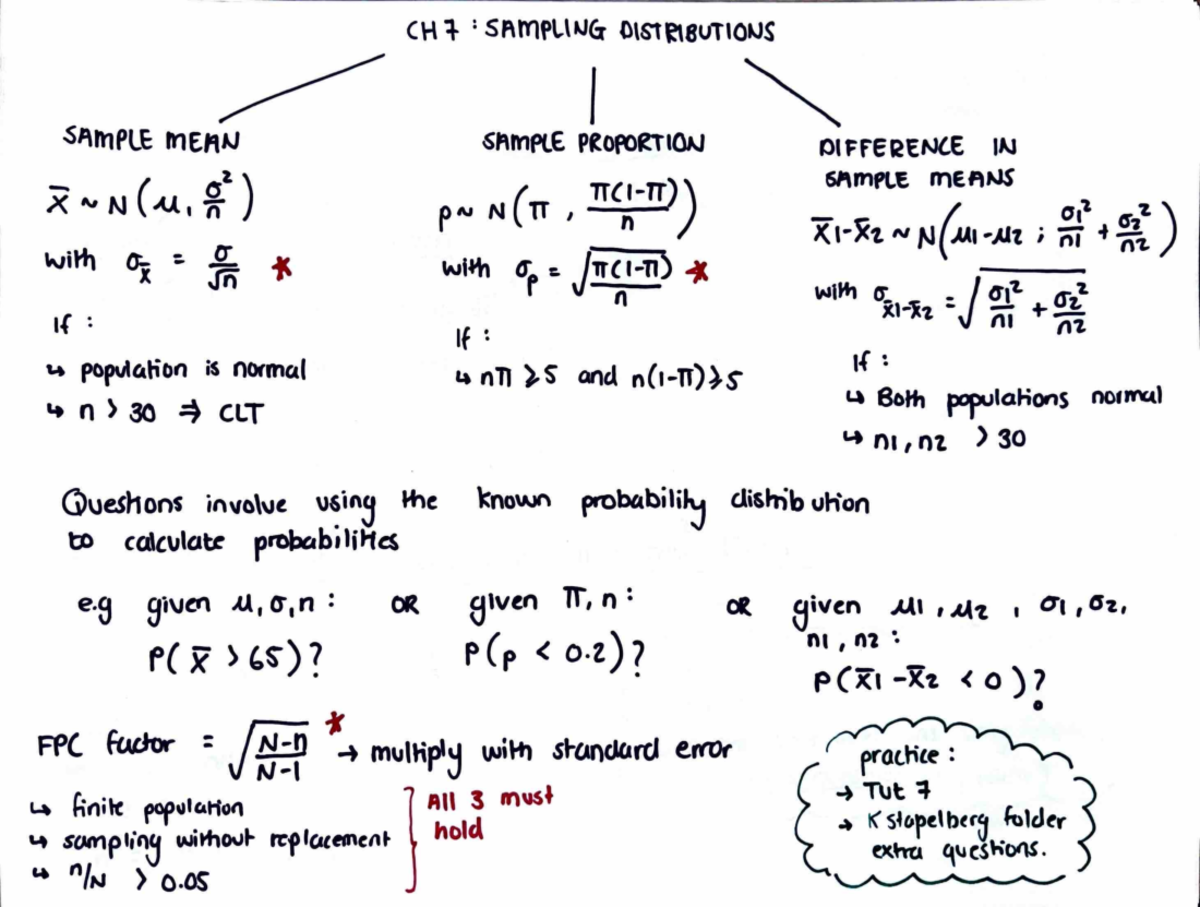 CH 7 : SAMPLING DISTRIBUTIONS
SAMPLE MEAN
x̄ ~ N(μ, σ²/n)
with σx̄ = σ/√n *
If :
↳ population is normal
↳ n > 30 ⇒ CLT
SAMPLE PROPORTION
p ~ N(π, π(1-π)/n)
with σp = √(π(1-π)/n) *
If :
↳ nπ ≥ 5 and n(1-π) ≥ 5
DIFFERENCE IN
SAMPLE MEANS
x̄1-x̄2 ~ N(μ1-μ2 ; σ1²/n1 + σ2²/n2)
with σx̄1-x̄2 = √(σ1²/n1 + σ2²/n2)
If :
↳ Both populations normal
↳ n1, n2 > 30
Questions involve using the known probability distribution
to calculate probabilities
e.g given μ, σ, n :
P(x̄ > 65)?
OR
given π, n :
P(p < 0.2)?
OR
given μ1, μ2, σ1, σ2,
n1, n2 :
P(x̄1-x̄2 < 0)?
FPC factor = √(N-n/N-1) * → multiply with standard error
↳ finite population
↳ sampling without replacement
↳ n/N > 0.05
All 3 must
hold
practice :
→ Tut 7
→ K stapelberg folder
extra questions.